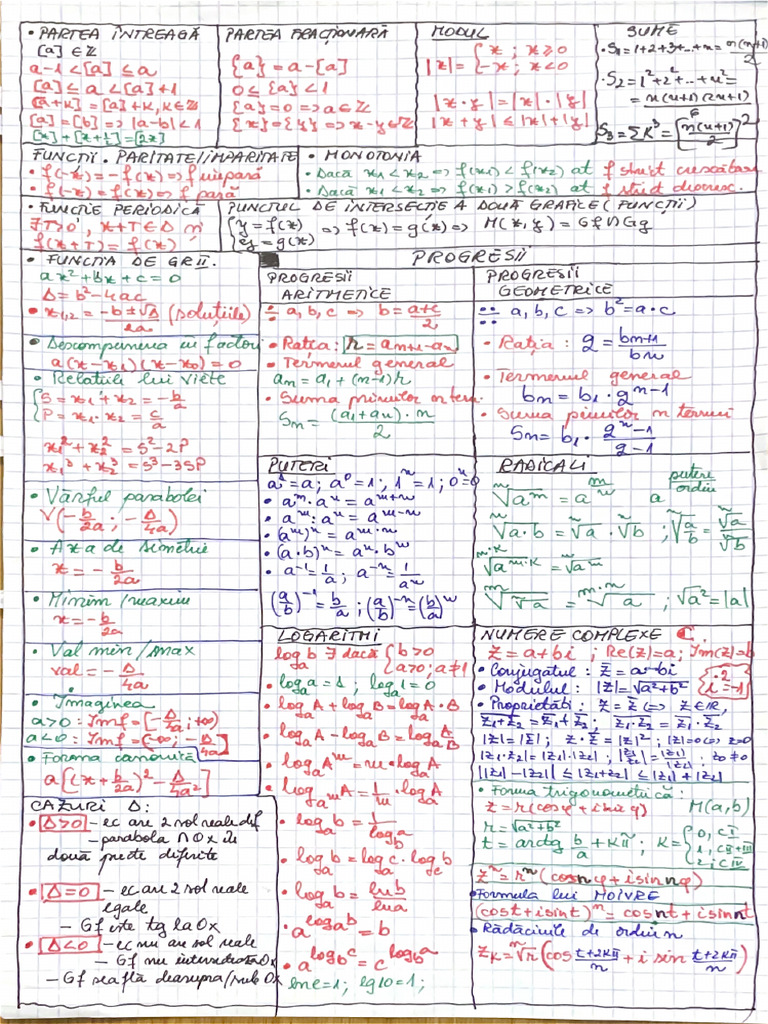 • PARTEA ÎNTREAGĂ
[a] ∈ Z
a-1 < [a] ≤ a
[a] ≤ a < [a]+1
[a+k] = [a]+k, k∈Z
[a] = [b] => |a-b| < 1
[x] + [x+½] = [2x]
PARTEA FRACȚIONARĂ
{a} = a-[a]
0 ≤ {a} < 1
{a} = 0 => a∈Z
{x} = {y} => x-y∈Z
MODUL
|x| = { x ; x≥0
-x ; x<0
|x·y| = |x|·|y|
|x+y| ≤ |x|+|y|
SUME
• S₁ = 1+2+3+...+n = n(n+1)/2
• S₂ = 1²+2²+...+n² =
= n(n+1)(2n+1)/6
S₃ = ΣK³ = [n(n+1)/2]²
FUNCȚII. PARITATE/IMPARITATE
• f(-x) = -f(x) => f impară
• f(-x) = f(x) => f pară
• MONOTONIA
• Dacă x₁<x₂ => f(x₁) < f(x₂) at f strict crescătoare
• Dacă x₁<x₂ => f(x₁) > f(x₂) at f strict descresc.
• FUNCȚIE PERIODICĂ
∃ T>0, x+T∈D și
f(x+T) = f(x)
PUNCTUL DE INTERSECȚIE A DOUĂ GRAFICE (FUNCȚII)
{ y = f(x)
y = g(x) => f(x) = g(x) => M(x,y) = Gf∩Gg
• FUNCȚIA DE GR II.
ax²+bx+c = 0
Δ = b²-4ac
• x₁,₂ = (-b±√Δ)/2a (soluțiile)
• Descompunerea in factori
a(x-x₁)(x-x₂) = 0
• Relațiile lui Viete
{ S = x₁+x₂ = -b/a
P = x₁·x₂ = c/a
x₁²+x₂² = S²-2P
x₁³+x₂³ = S³-3SP
• Vârful parabolei
V(-b/2a ; -Δ/4a)
• Axa de simetrie
x = -b/2a
• Minim/maxim
x = -b/2a
• Val min/max
val = -Δ/4a
• Imaginea
a>0 : Imf = [-Δ/4a ; +∞)
a<0 : Imf = (-∞ ; -Δ/4a]
• Forma canonică
a[(x+b/2a)² - Δ/4a²]
CAZURI Δ:
• Δ>0 - ec are 2 sol reale dif
- parabola ∩ Ox în
două pucte diferite
• Δ=0 - ec are 2 sol reale
egale
- Gf este tg la Ox
• Δ<0 - ec nu are sol reale
- Gf nu intersectează Ox
- Gf se află deasupra/sub Ox
PROGRESII
PROGRESII
ARITMETICE
÷ a, b, c => b = (a+c)/2
• Rația: r = aₙ₊₁-aₙ
• Termenul general
aₙ = a₁+(n-1)r
• Suma primilor n term.
Sₙ = (a₁+aₙ)·n/2
PROGRESII
GEOMETRICE
a, b, c => b² = a·c
• Rația: q = bₙ₊₁/bₙ
• Termenul general
bₙ = b₁·qⁿ⁻¹
• Suma primilor n termeni
Sₙ = b₁·(qⁿ-1)/(q-1)
PUTERI
a¹=a; a⁰=1; 1ⁿ=1; 0ⁿ=0
• aᵐ·aⁿ = aᵐ⁺ⁿ
• aᵐ:aⁿ = aᵐ⁻ⁿ
• (aᵐ)ⁿ = aᵐ·ⁿ
• (a·b)ⁿ = aⁿ·bⁿ
• a⁻¹ = 1/a ; a⁻ⁿ = 1/aⁿ
(a/b)⁻¹ = b/a ; (a/b)⁻ⁿ = (b/a)ⁿ
RADICALI
ⁿ√aᵐ = a^(m/n) a^(putere/ordin)
ⁿ√(a·b) = ⁿ√a · ⁿ√b ; ⁿ√(a/b) = ⁿ√a/ⁿ√b
ⁿ·ᵏ√aᵐ·ᵏ = ⁿ√aᵐ
ᵐ√(ⁿ√a) = ᵐ·ⁿ√a ; √a² = |a|
LOGARITHI
logₐb ∃ dacă { b>0
a>0, a≠1
• logₐa = 1 ; logₐ1 = 0
• logₐA + logₐB = logₐA·B
• logₐA - logₐB = logₐ A/B
• logₐAᵐ = m·logₐA
• log_(aᵐ)A = 1/m · logₐA
• logₐb = 1/log_b a
• logₐb = logₐc · log_c b
• logₐb = ln b/ln a
• a^(logₐb) = b
• a^(log b^c) = c^(log b^a)
lne=1 ; lg10=1 ;
NUMERE COMPLEXE C
z = a+bi ; Re(z)=a; Im(z)=b
• Conjugatul : z̄ = a-bi
• Modulul : |z| = √(a²+b²)
i² = -1
• Proprietăți : z = z̄ <=> z∈R,
z̄₁+z̄₂ = z̄₁+z̄₂ ; z̄₁·z̄₂ = z̄₁·z̄₂
|z| = |z̄| ; z·z̄ = |z|² ; |z|=0 <=> z=0
|z₁·z₂| = |z₁|·|z₂| ; |z₁/z₂| = |z₁|/|z₂| ; z₂≠0
||z₁|-|z₂|| ≤ |z₁+z₂| ≤ |z₁|+|z₂|
• Forma trigonometrică :
z = r(cosφ+isinφ) M(a,b)
r = √(a²+b²)
t = arctg b/a + kπ ; k = { 0, CI
1, C II+III
2, C IV
zⁿ = rⁿ(cosnφ+isinnφ)
• Formula lui MOIVRE
(cost+isint)ⁿ = cosnt+isinnt
• Rădăcinile de ordin n
z_K = ⁿ√r (cos (t+2kπ)/n + i sin (t+2kπ)/n)